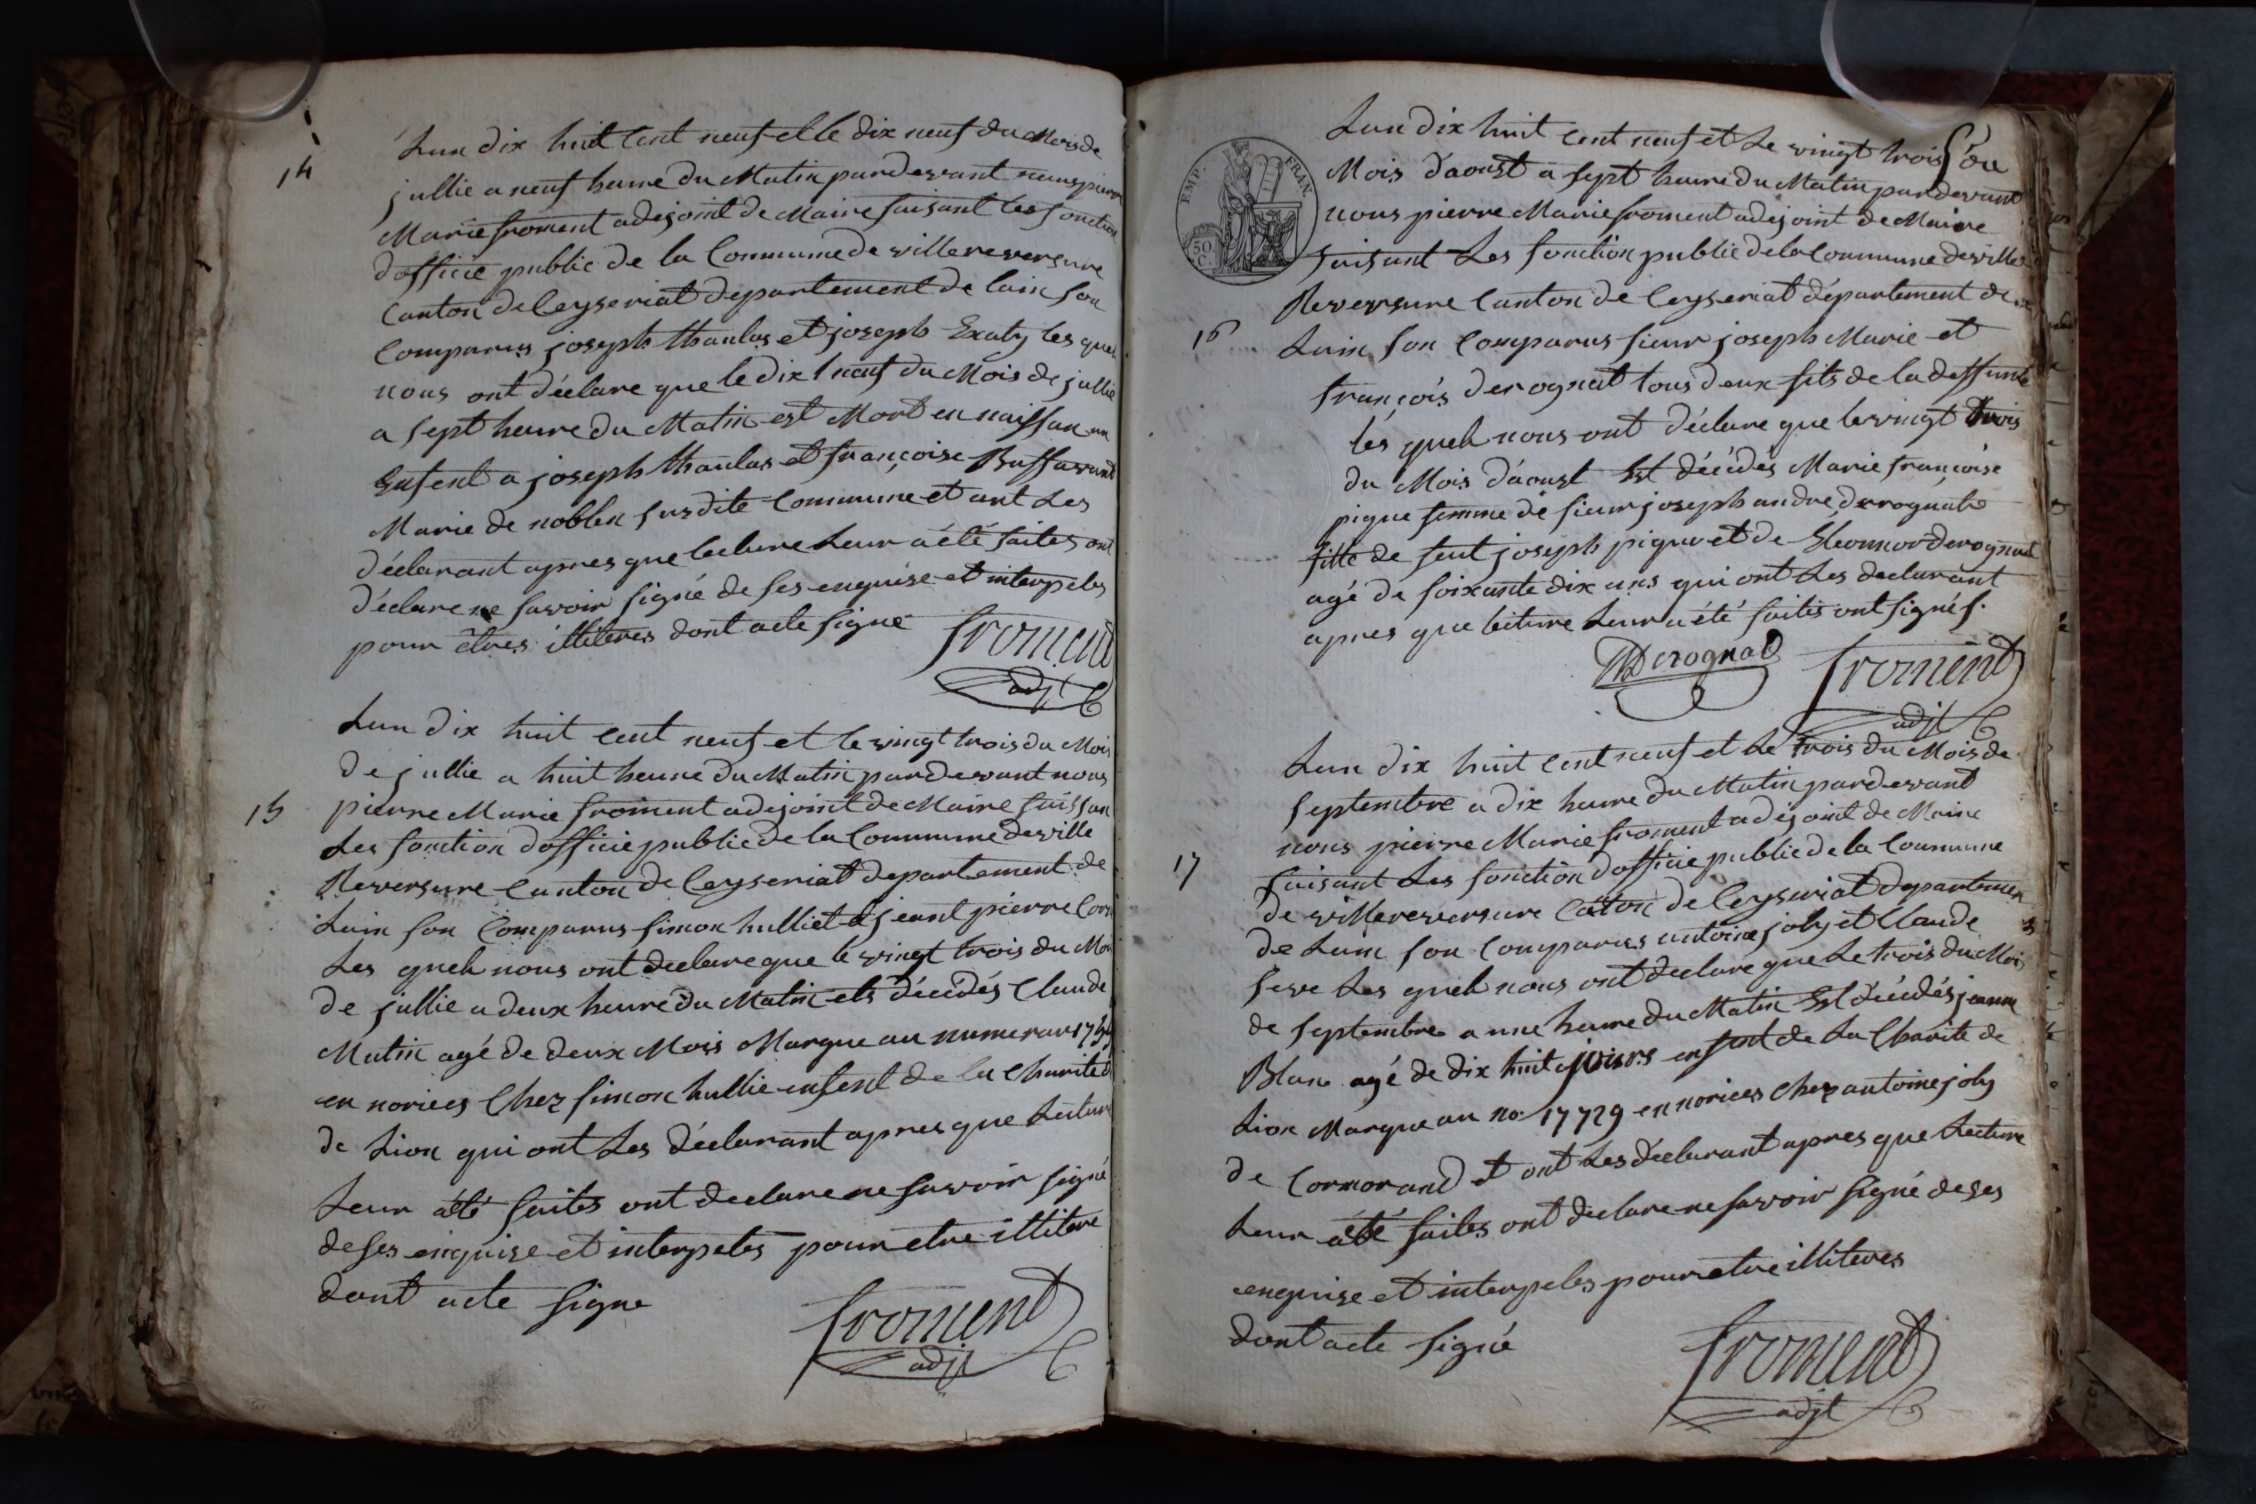 14
Lan dix huit cent neuf et le dix neuf du Mois de
jullie a neuf heure du Matin pardevant nous pierre
Marie froment adejoint de Maire faisant les fonction
dofficie public de la Commune de villereversure
Canton de Ceyseriat departement de lain son
Comparus joseph thaulas et joseph les quel
nous ont déclare que le dix neuf du Mois de jullie
a sept heure du Matin est Mort en naissan un
Enfent a joseph thaulas et françoise Buffavand
Marie de noblen susdite Commune et ont Les
déclarant apres que lecture Leur a été faites ont
déclare ne savoir signé de ses enquise et interpeles
pour êtres illiteres dont acte signé froment
adjt
Lan dix huit cent neuf et le vingt trois du Mois
De jullie a huit heure du Matin pardevant nous
15
pierre Marie froment adejoint de Maire faissan
Les fonction dofficie public de la Commune de ville
Reversure Canton de Ceyseriat departement de
Lain son Comparus simon hulliet et jeant pierre
Les queh nous ont declare que le vingt trois du Moi
De jullie a deux heure du Matin ets décédés Claude
Matin agé de deux Mois Marque au numerau
en norices Chez simon hullie enfent de la Charité
de Lion qui ont Les déclarant apres que Lecture
Leur a été faites ont declare ne savoir signé
de ses enquise et interpeles pour etre illitere
dont acte signe
froment
adjt
EMP. FRAN.
50
C.
Lan dix huit cent neuf et Le vingt trois du
Mois daoust a sept heure du Matin pardevant
nous pierre Marie froment adejoint de Maire
faisant Les fonction public de la Commune de ville
Reversure Canton de Ceyseriat département de
16
Lain son Comparus sieur joseph Marie et
françois derognat tous deux fits de la deffunte
lés queh nous ont déclare que le vingt trois
du Mois daoust Est décédés Marie françoise
pique femme de sieur joseph andre derognat
fille de feut joseph pique et de Eleonnor derognat
agé de soixante dix ans qui ont Les declarant
apres que lecture Leur a été faites ont signés.
Derognat froment
adjt
Lan dix huit cent neuf et Le trois du Mois de
septembre a dix heure du Matin pardevant
nous pierre Marie froment adejoint de Maire
17
faisant Les fonction dofficie public de la Commune
de villereversure Caton de Ceyseriat departemen
de Lain son Comparus antoine joly et Claude
seve Les queh nous ont declare que Le trois du Moi
de septembre a une heure du Matin Est décédés jeanne
Blanc agé de dix huit jours enfent de La Charite de
Lion Marque au no. 17729 en norices Chez antoine joly
de Cormorand et ont Les déclarant apres que Lecture
Leur a été faites ont declare ne savoir signé de ses
enquise et interpeles pour etre illiteres
dont acte signé
froment
adjt